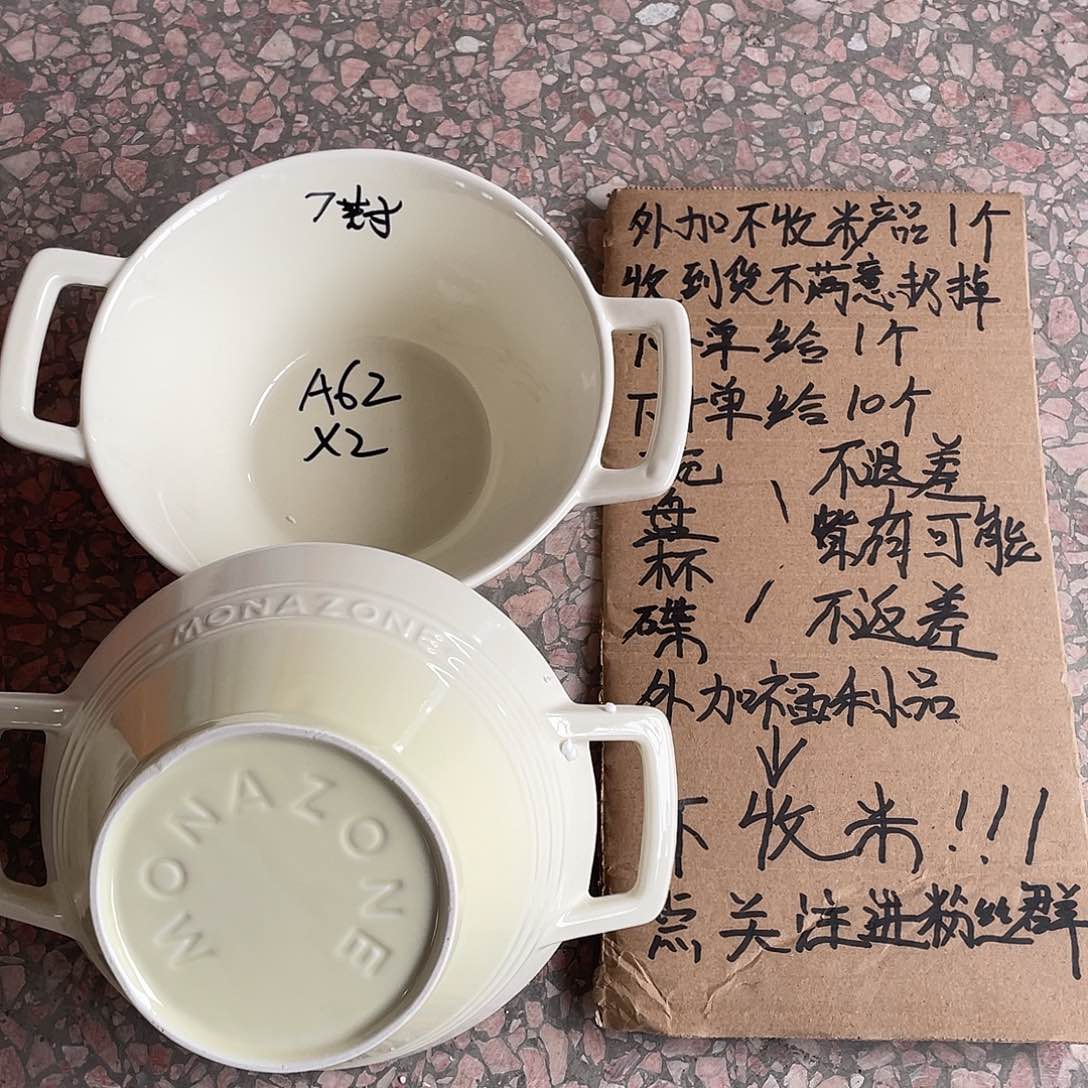 7英寸
A62
X2
MONAZONE
MONAZONE
外加不收米产品1个
收到货不满意扔掉
单给1个
单给10个
不退差
盘
皆有可能
杯
碟
不返差
外加福利品
↓
不收米!!!
点关注进粉丝群